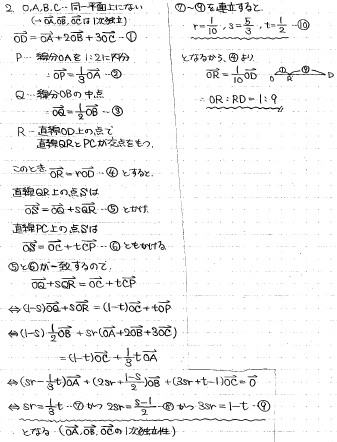 2. O,A,B,C…同一平面上にない
(→ OA, OB, OCは1次独立)
OD = OA + 2OB + 3OC …①
P…線分OAを1:2に内分
∴ OP = 1/3 OA …②
Q…線分OBの中点
∴ OQ = 1/2 OB …③
R…直線OD上の点で
直線QRとPCが交点をもつ.
このとき OR = rOD …④ とすると.
直線QR上の点Sは
OS = OQ + sQR …⑤ とかけ.
直線PC上の点Sは
OS = OC + tCP …⑥ ともかける.
⑤と⑥が一致するので.
OQ + sQR = OC + tCP
⇔ (1-s)OQ + sOR = (1-t)OC + tOP
⇔ (1-s)1/2 OB + sr(OA + 2OB + 3OC)
= (1-t)OC + 1/3 tOA
⇔ (sr - 1/3 t)OA + (2sr + (1-s)/2)OB + (3sr + t - 1)OC = 0
⇔ sr = 1/3 t …⑦ かつ 2sr = (s-1)/2 …⑧ かつ 3sr = 1-t …⑨
となる (OA, OB, OCの1次独立性)
⑦〜⑨を連立すると.
r = 1/10, s = 5/3, t = 1/2 …⑩
となるから, ④より
OR = 1/10 OD
O R D
∴ OR : RD = 1 : 9